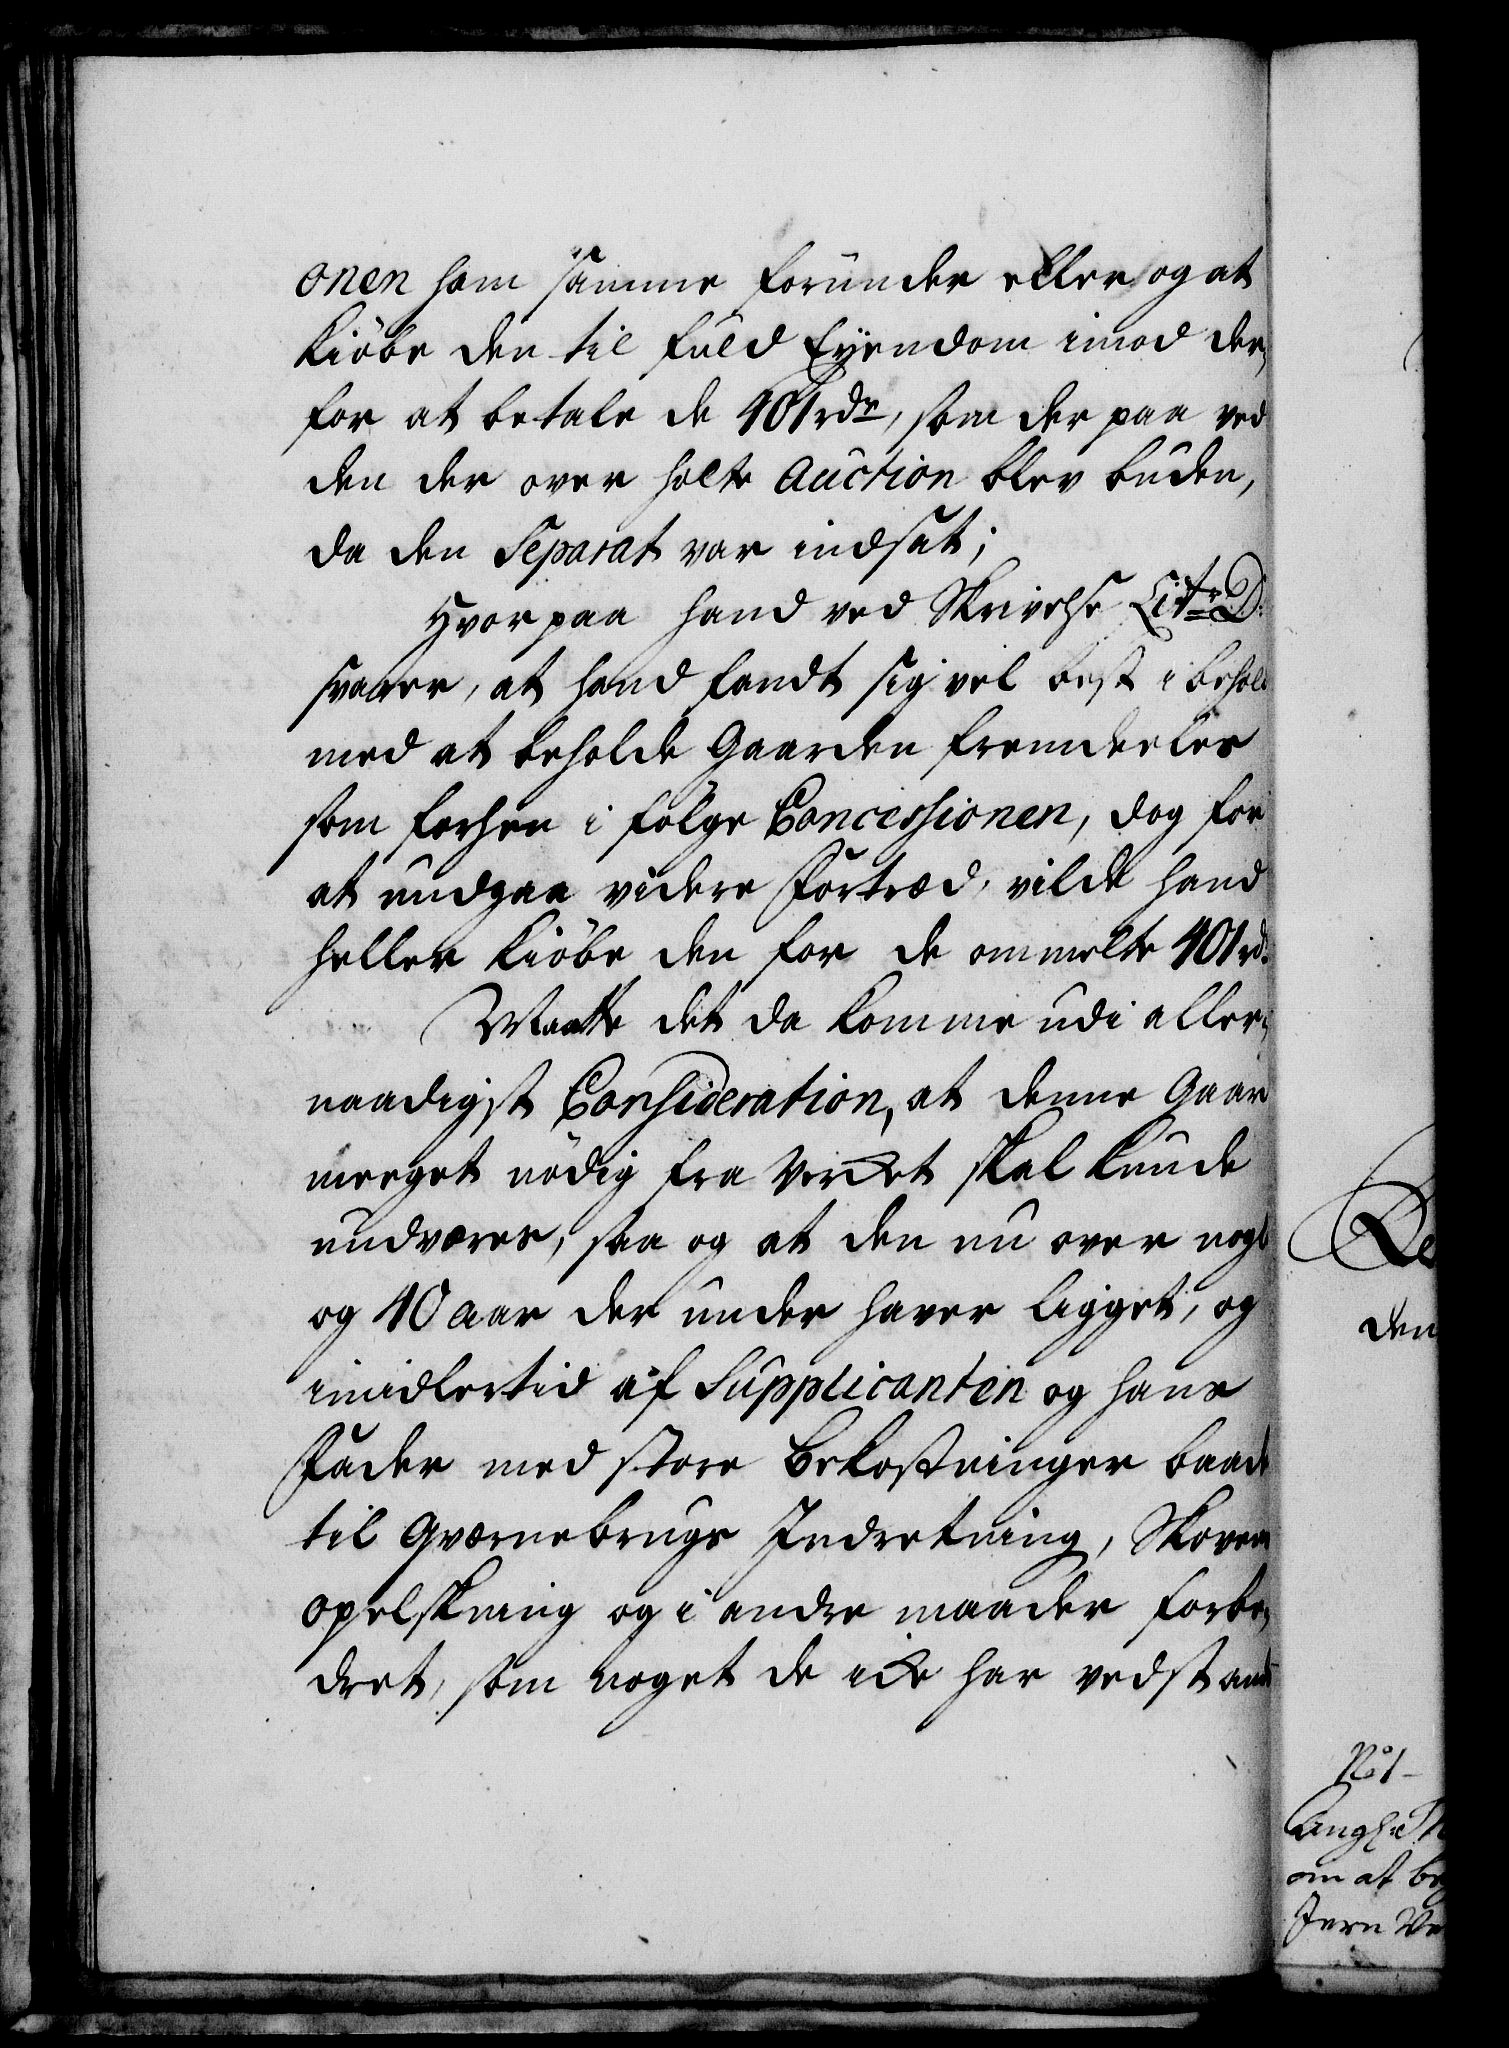 onen ham samme forunder eller og at
kiöbe den til fuld Eÿendom imod der,
for at betale de 401 rdr, som der paa ved
den der over holte Auction blev buden,
da den Separat var indsat;
Hvorpaa hand ved Skrivelse Litr: D:
svarer, at hand fandt sig vel best i behold
med at beholde Gaarden fremdeeles
som forhen i fölge Concessionen, dog for
at undgaa videre Fortræd, vilde hand
heller kiöbe den for de ommelte 401 rd:
Maatte det da komme udi aller,
naadigst Consideration, at denne Gaar
meeget nödig fra Vercket skal kunde
undværes, saa og at den nu over nogl
og 40 aar der under haver ligget, og
imidlertid af Supplicanten og hans
Fader med store bekostninger baade
til Qværnebrugs Indretning, Skovens
opelskning og i andre maader forbe,
dret, som noget de icke har vedstand
De
den
No 1
om at be
Jern Ve